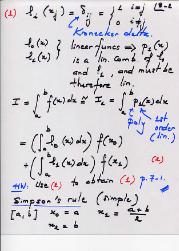 (1) ℓᵢ(xⱼ) = δᵢⱼ = { 1 i=j
0 i≠j
Kronecker delta.
ℓ₀(x) } linear funcs ⇒ p₁(x)
ℓ₁(x) is a lin. comb of ℓ₀
and ℓ₁, and must be
therefore lin.
I = ∫ₐᵇ f(x)dx ≈ I₁ = ∫ₐᵇ p₁(x)dx
poly 1st order (lin.)
= (∫ₐᵇ ℓ₀(x)dx) f(x₀)
+ (∫ₐᵇ ℓ₁(x)dx) f(x₁) (2)
HW: Use (2) to obtain (1) p. 7-1.
Simpson's rule (simple)
[a, b] x₀ = a x₁ = (a+b)/2
x₂ = b